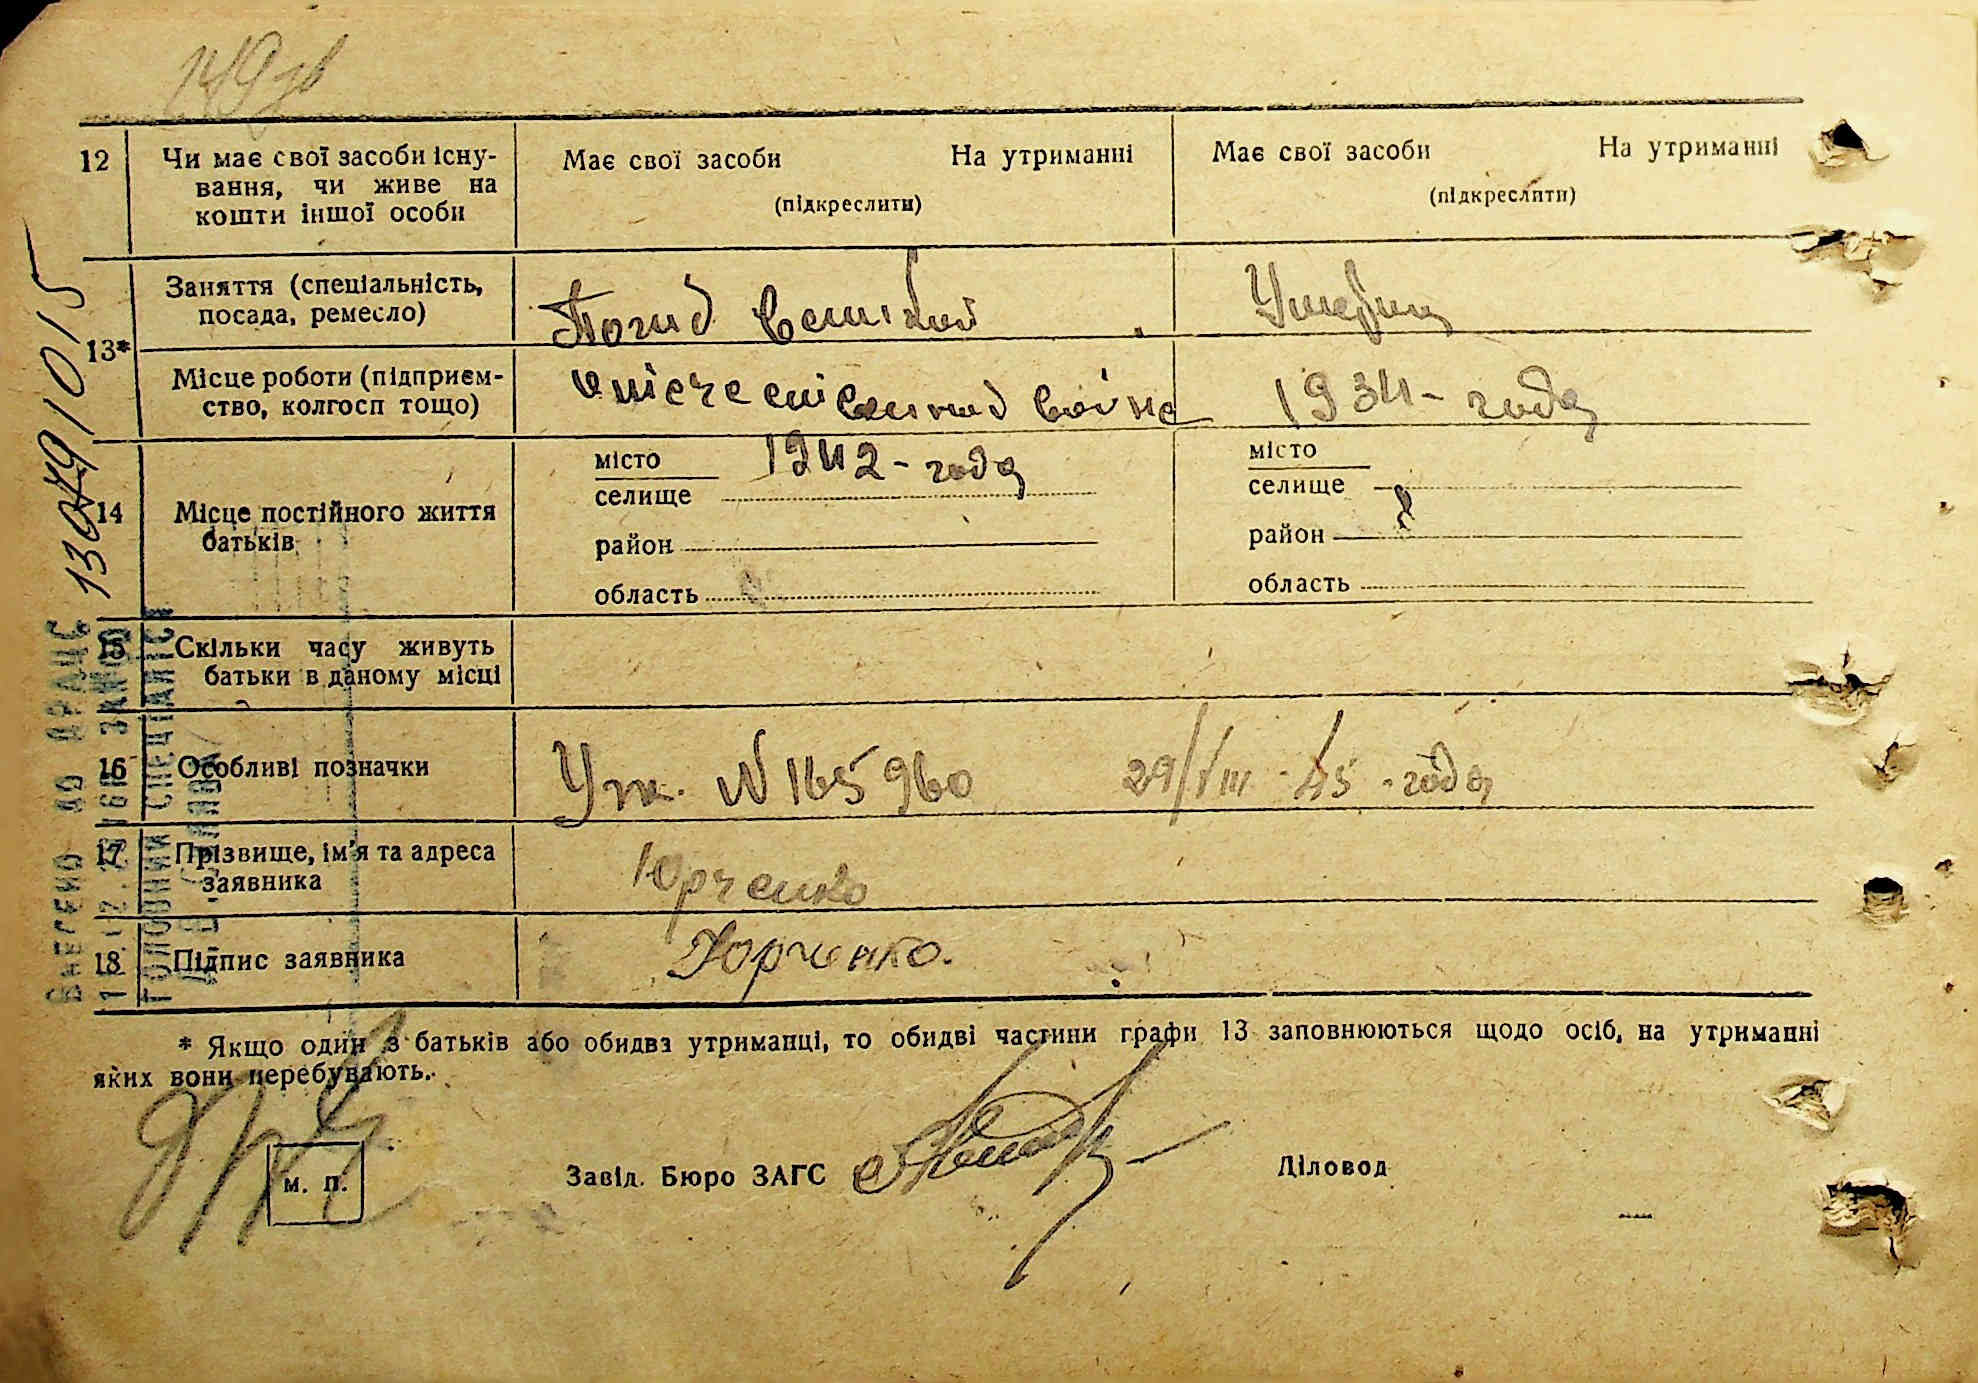 12 Чи має свої засоби існу- Має свої засоби На утриманні Має свої засоби На утриманні
вання, чи живе на
кошти іншої особи (підкреслити) (підкреслити)
Заняття (спеціальність,
посада, ремесло) Погиб великой Умерли
13*
Місце роботи (підприєм-
ство, колгосп тощо) войне 1934 - года
14 Місце постійного життя
батьків
місто 1942 - года місто
селище селище
район район
область область
15 Скільки часу живуть
батьки в даному місці
16 Особливі позначки N 165960 29/VIII - 45 - года
17 Прізвище, ім'я та адреса
заявника Юрченко
18 Підпис заявника Юрченко.
* Якщо один з батьків або обидва утриманці, то обидві частини графи 13 заповнюються щодо осіб, на утриманні
яких вони перебувають.
М. П. Завід. Бюро ЗАГС Діловод
ВНЕСЕНО ДО ДРАЦС
ГОЛОВНИЙ СПЕЦІАЛІСТ